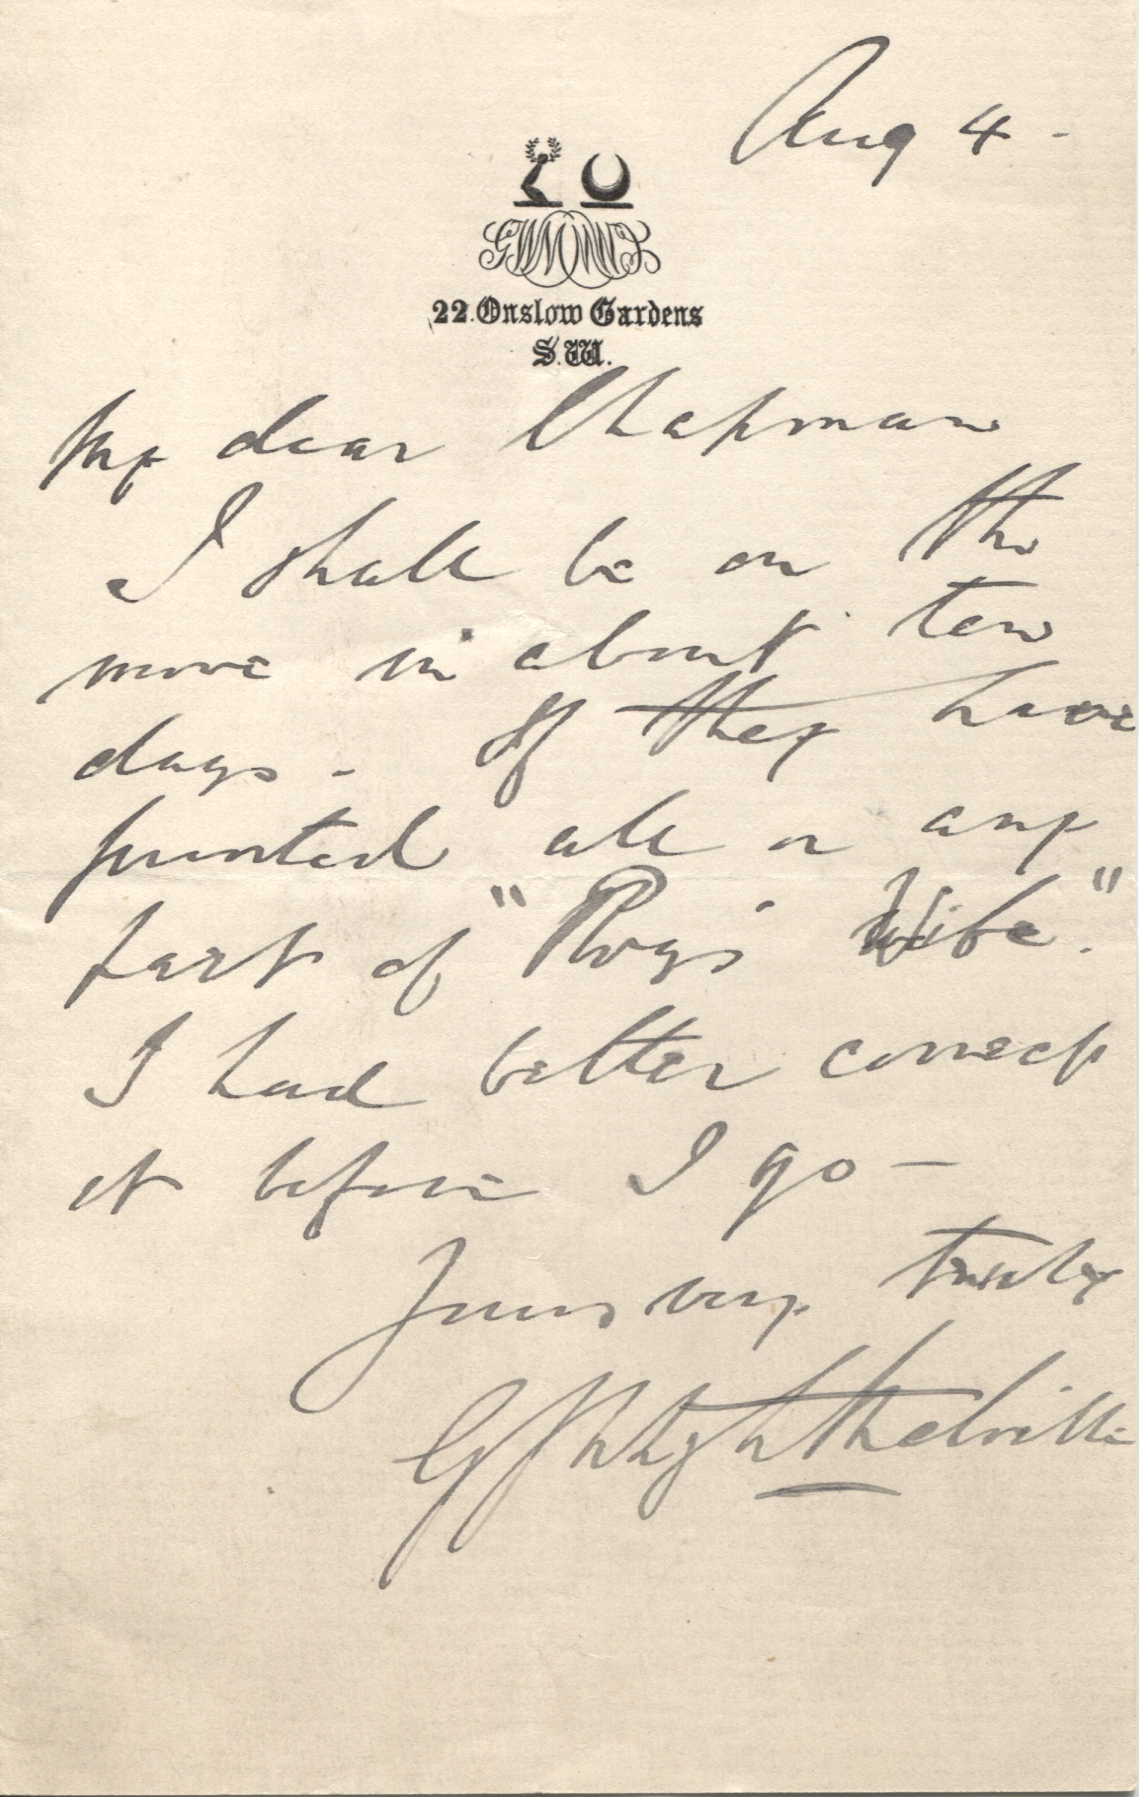 Aug 4 -
22. Onslow Gardens
S.W.
My dear Chapman
I shall be on the
move in about ten
days - If they have
printed all or any
part of "Roy's Wife."
I had better correct
it before I go -
Yours very truly
G J Whyte Melville